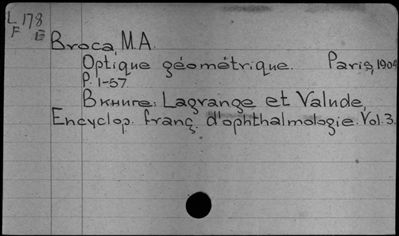 L 178
F B
Broca, M.A.
Optique géométrique. Paris, 1904
P. 1-57
Вкниге: Lagrange et Valude,
Encyclop. franç. d'ophthalmologie. Vol. 3.